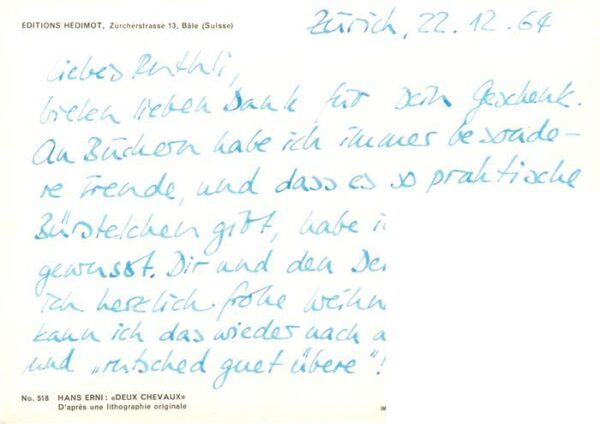 EDITIONS HEDIMOT, Zürcherstrasse 13, Bâle (Suisse)
Zürich, 22.12.64
Liebes Ruthli,
vielen lieben Dank für Dein Geschenk.
An Büchern habe ich immer besonde-
re Freude, und dass es so praktische
Bürstelchen gibt, habe i
gewusst. Dir und den Dei
ich herzlich frohe Weihn
kann ich das wieder nach a
und "rutsched guet übere"!
No. 518 HANS ERNI: «DEUX CHEVAUX»
D'après une lithographie originale
IM